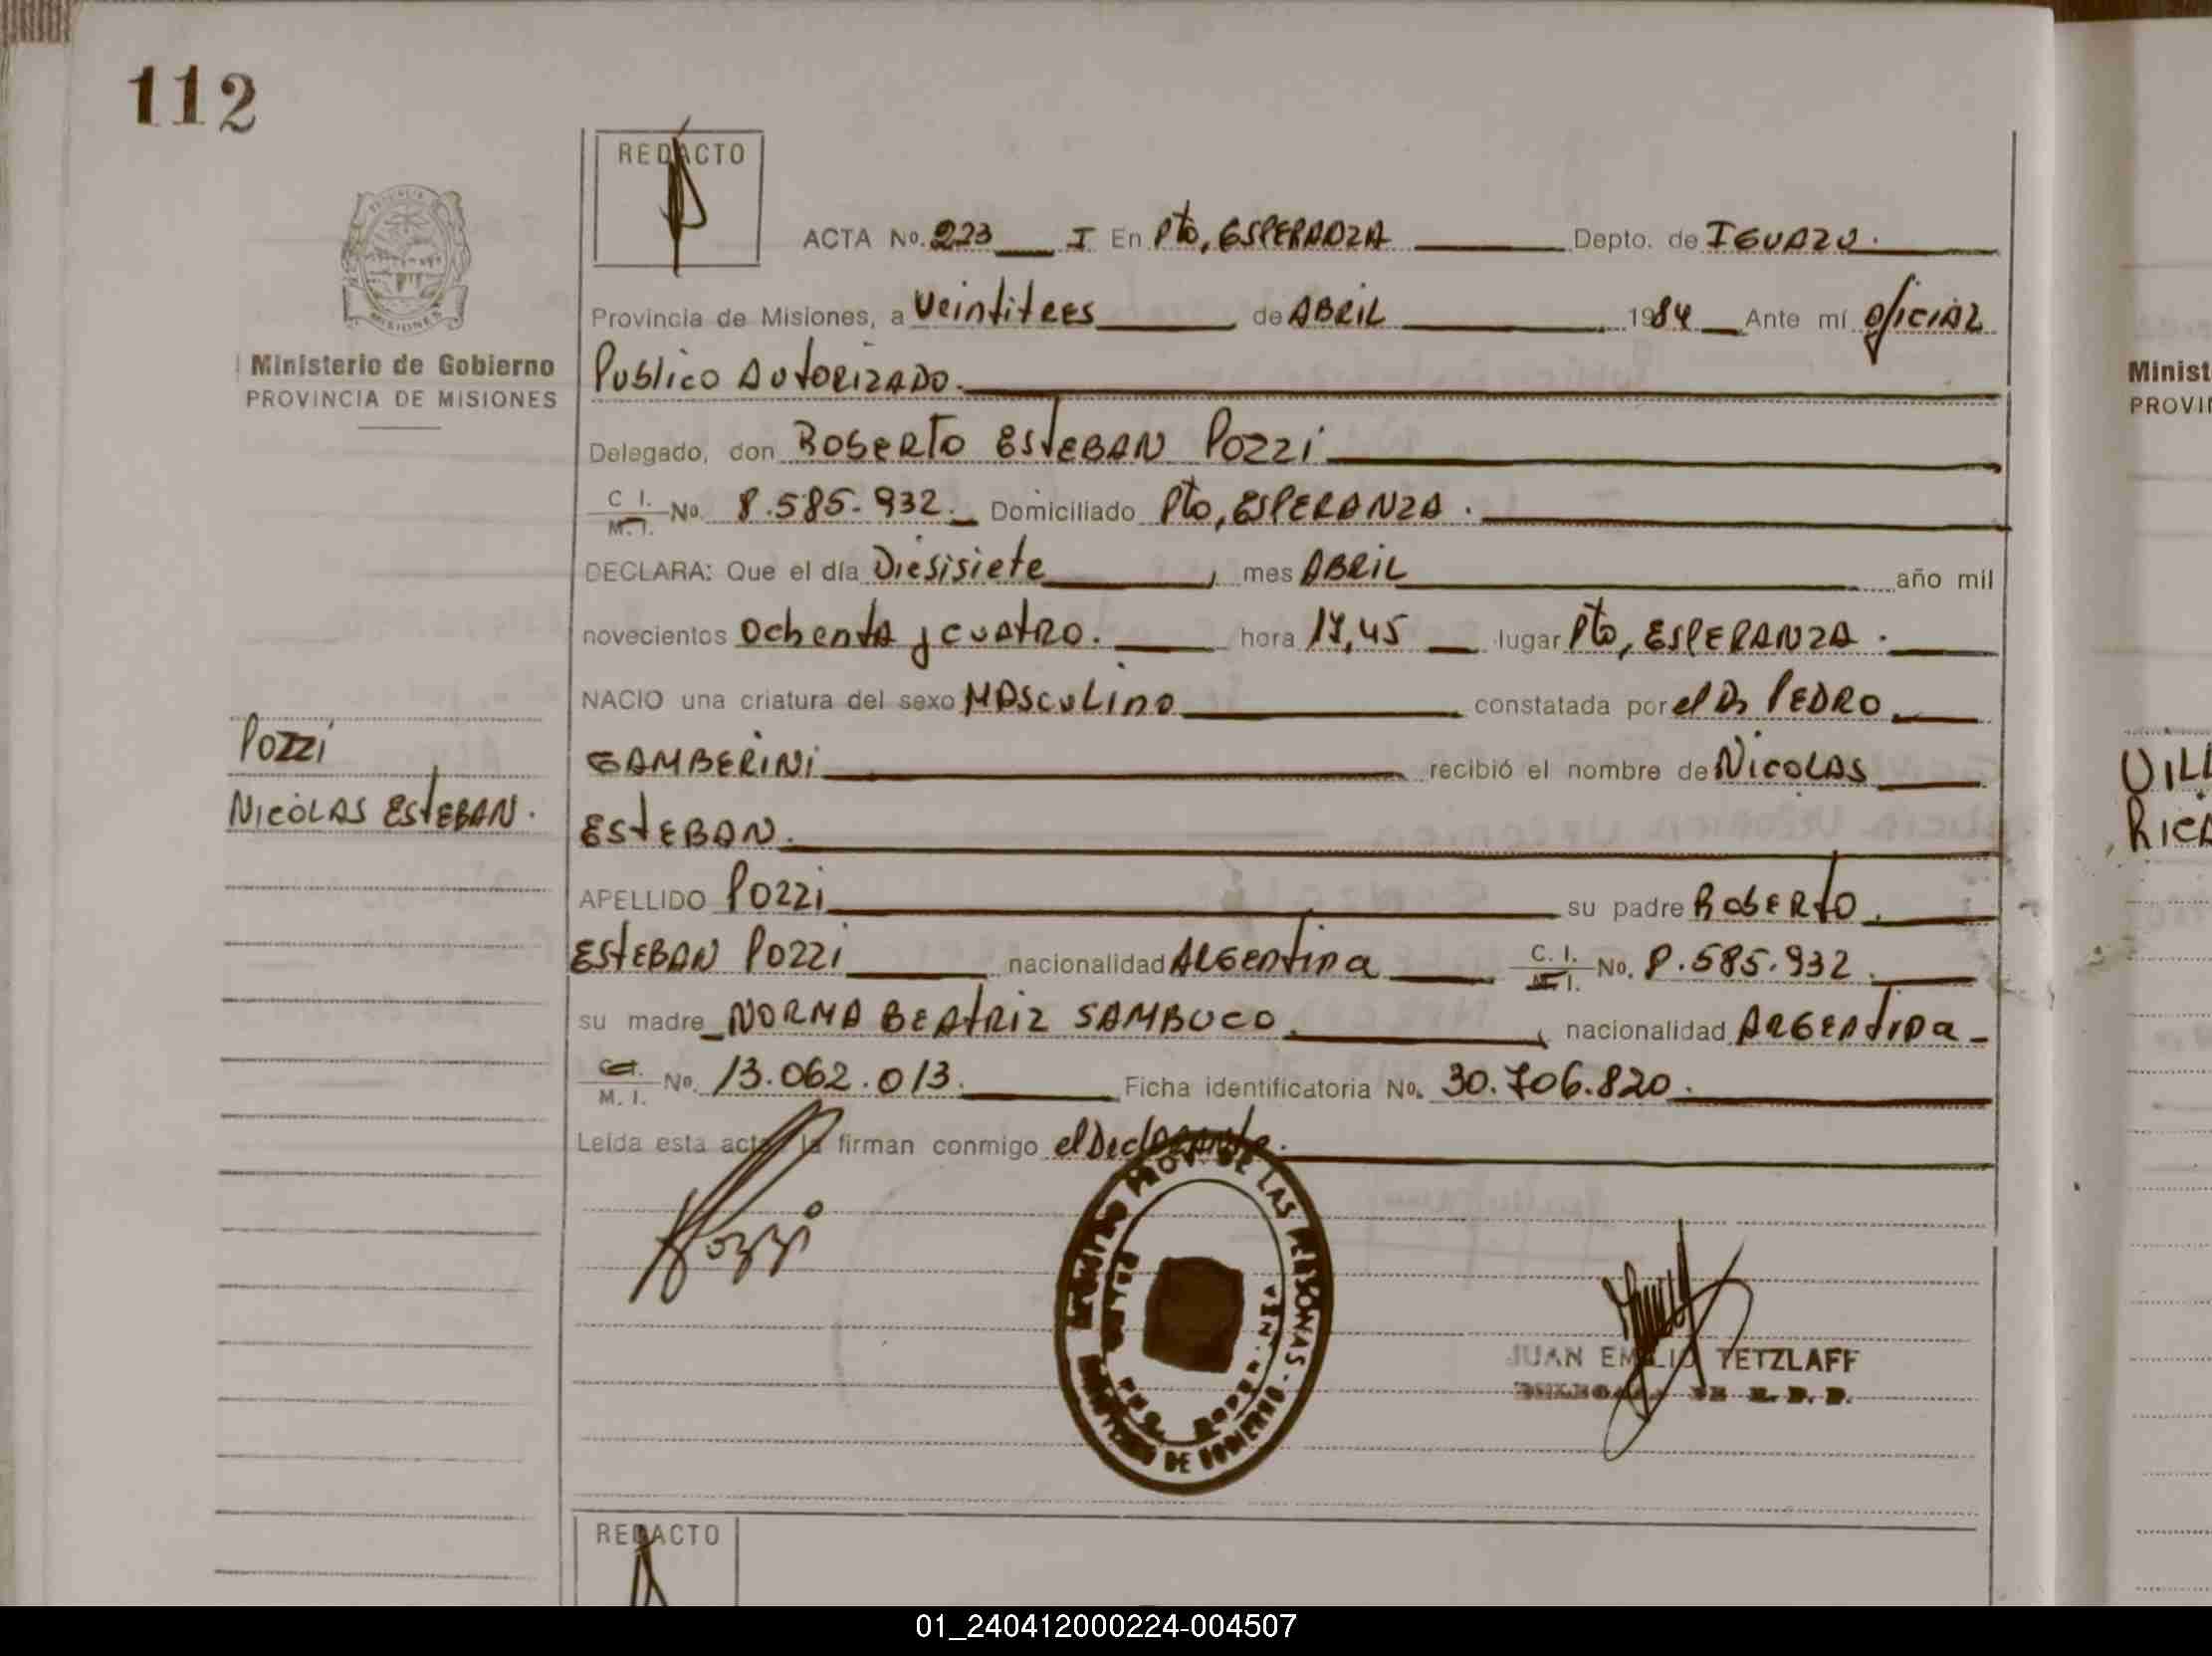 112
REDACTO
ACTA No. 223 I En Pto, ESPERANZA Depto. de IGUAZU.
Provincia de Misiones, a Veintitres de ABRIL 1984 Ante mí oficial
Publico Autorizado.
Ministerio de Gobierno
PROVINCIA DE MISIONES
Delegado, don ROBERTO ESTEBAN POZZI
C I. M. I. No. 8.585.932. Domiciliado Pto, ESPERANZA.
DECLARA: Que el día Diesisiete, mes ABRIL año mil
novecientos Ochenta y cuatro. hora 17,45 lugar Pto, ESPERANZA.
NACIO una criatura del sexo MASCULINO constatada por el Dr PEDRO
GAMBERINI recibió el nombre de NICOLAS
ESTEBAN.
POZZI
NICOLAS ESTEBAN.
APELLIDO POZZI su padre ROBERTO
ESTEBAN POZZI nacionalidad ARGENTINA C. I. M. I. No. 8.585.932.
su madre NORMA BEATRIZ SAMBUCO, nacionalidad ARGENTINA
C. I. M. I. No. 13.062.013. Ficha identificatoria No. 30.706.820.
Leída esta acta la firman conmigo el Declarante.
Pozzi
PROV. DE LAS PERSONAS
DE GOBIERNO
JUAN EMILIO TETZLAFF
REDACTO
Minist
PROVI
VILL
RICA
01_240412000224-004507